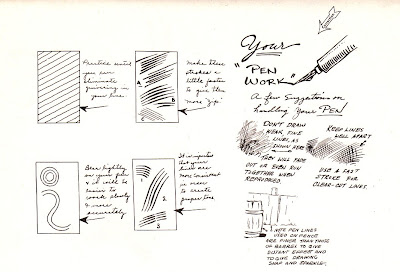 Practice until
you can
eliminate
quivering in
your line.
Make these
strokes a
little faster
to give them
more "zip"
A
B
C
Bear lightly
on your pen
& it will be
easier to
work slowly
& more
accurately.
It is important
that your
lines are
more consistent
in order
to create
proper tone
1
2.
3
Your
"PEN
WORK"
A Few Suggestions on
handling Your PEN
DON'T DRAW
WEAK, FINE
LINES, AS
SHOWN HERE
THEY WILL FADE
OUT OR EVEN RUN
TOGETHER WHEN
REPRODUCED.
KEEP LINES
WELL APART
USE A FAST
STROKE FOR
CLEAR-CUT LINES.
NOTE PEN LINES
USED ON FENCE
ARE FINER THAN THOSE
OF BARREL TO GIVE
DISTANT EFFECT AND
TO GIVE DRAWING
SNAP AND SPARKLE.